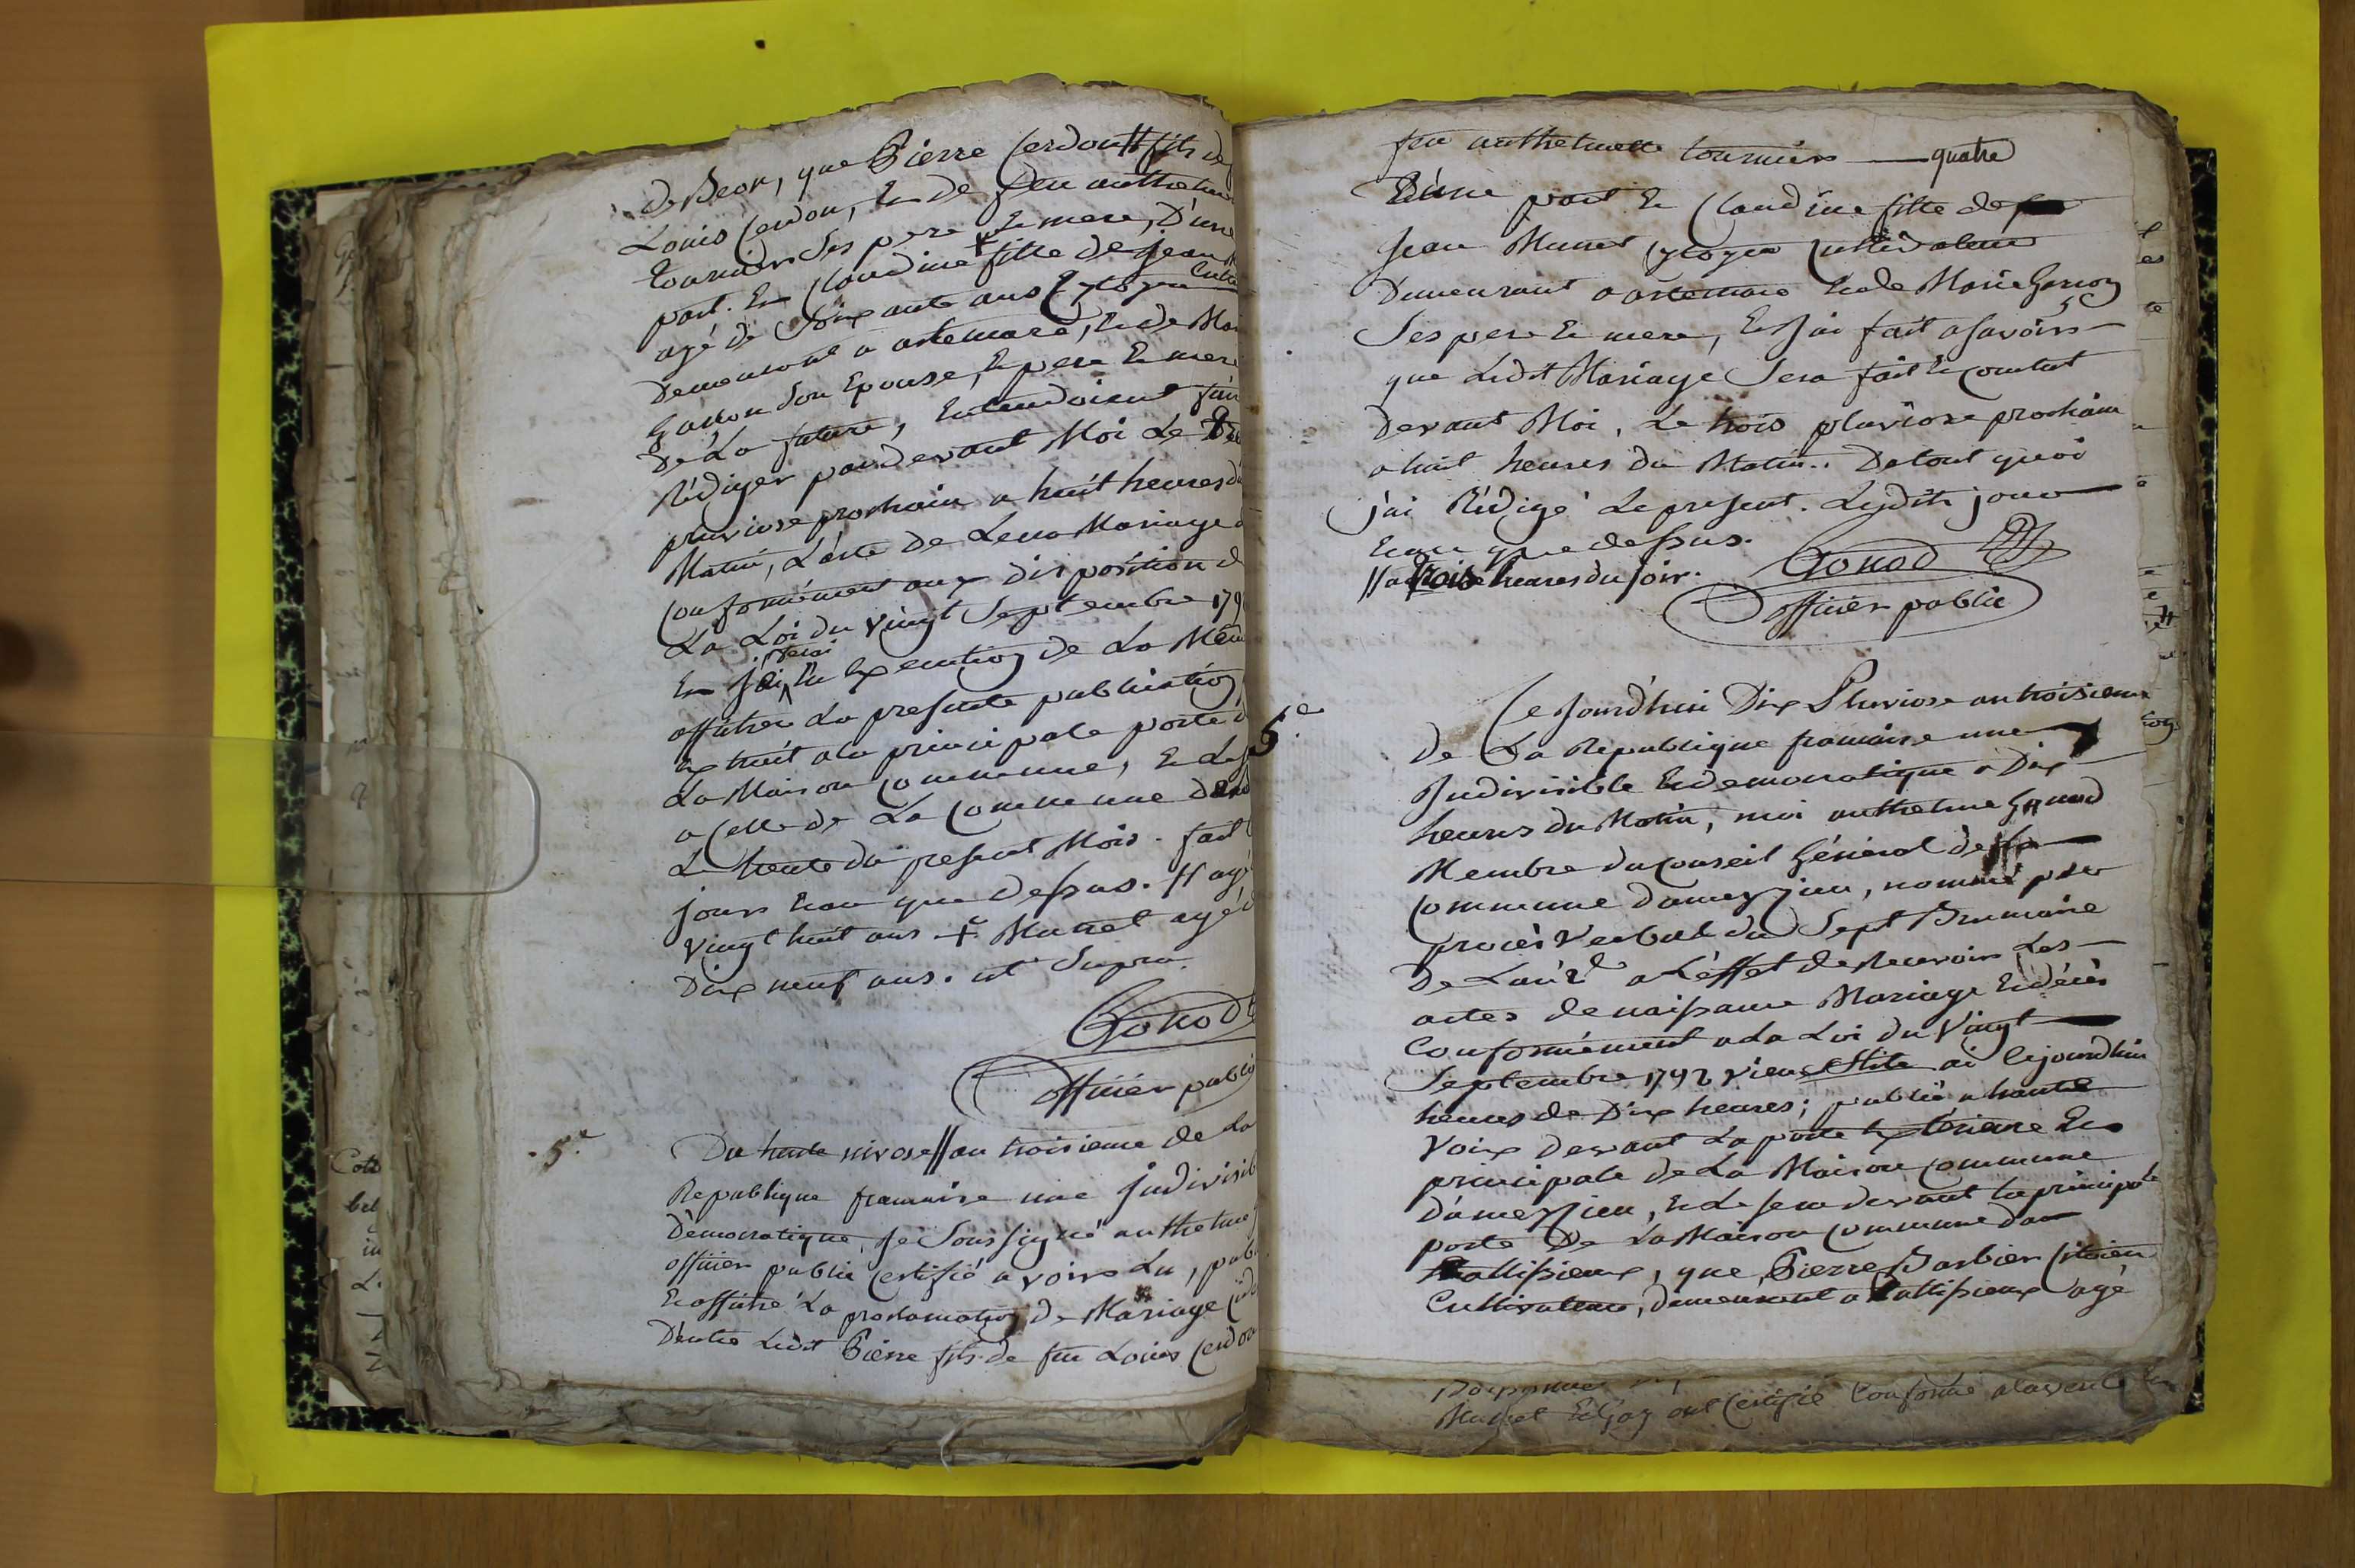 de Beon, que Pierre Cerdon // fils de
Louis Cerdon, Et de feu anthelmett
tournier Ses pere Et mere, D'une
part. Et Claudine + fille de Jean
agé de Soixante ans Cytoyen Culti
Demeurant a artemare, Et de Mar
Garron Son Epouse, Et pere Et mere
De La future, Entendoient fair
Rédiger pardevant Moi Le
pluviose prochain a huit heures du
Matin, L'acte de Leur Mariage
Conformément aux disposition de
La Loi du Vingt Septembre 179
Et j'ai Execution de La Mem
afficher La presente publication
Extrait a la principale porte d
La Maison Commune, Et Le
a Celle de La Commune
Le trente du present Mois. fait
jour Et an que dessus. // agé
Vingt huit ans + Munet agé
Dix neuf ans. ut Supra.
Gonod
officier public
5.e
Du trente nivose // an troisieme de La
Republique francaise une Indivisib
Démocratique, Je Soussigné anthelme
officier public Certifié avoir Lu, pub
Et affiché La proclamation de Mariage
D'entre Ledit Pierre fils de feu Louis Cerdon
feu anthelmette tournier — quatre
D'une part Et Claudine fille de
Jean Munet Cytoyen Cultivateur
Demeurant a artemare Et de Marie Garron
Ses pere Et mere, Et J'ai fait a Savoir
que Ledit Mariage Sera fait Et contract
Devant Moi, Le trois pluviose prochain
a huit heures du Matin. De tout quoi
j'ai Rédigé Le present. Lesdits jour
Et an que dessus.
// a trois heures du Soir. Gonod
officier public
5.e
Cejourd'hui Dix Pluviose an troisieme
De La Republique francaise une
Indivisible Et democratique a Dix
heures du Matin, moi anthelme Gonod
Membre du Conseil Général de la
Commune dameyzieu, nommé par
procès Verbal du Sept Brumaire
De L'an 2.d a L'éffet de Recevoir Les
actes de naissance Mariage Et décès
Conformément a La Loi du Vingt
Septembre 1792 ai Cejourdhui
heures de Dix heures; publié a haute
Voix Devant La porte Exterieure Et
principale de La Maison Commune
D'ameyzieu, Et Le Sera devant La principale
porte De La Maison Commune de
tallissieux, que Pierre Barbier Citoien
Cultivateur, demeurant a tallissieux agé
Munet Et ont Certifié Conforme a la verité